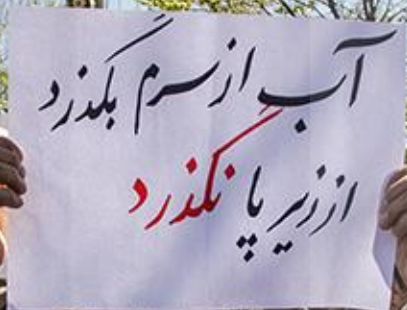 آب از سرم بگذرد
از زیر پا نگذرد